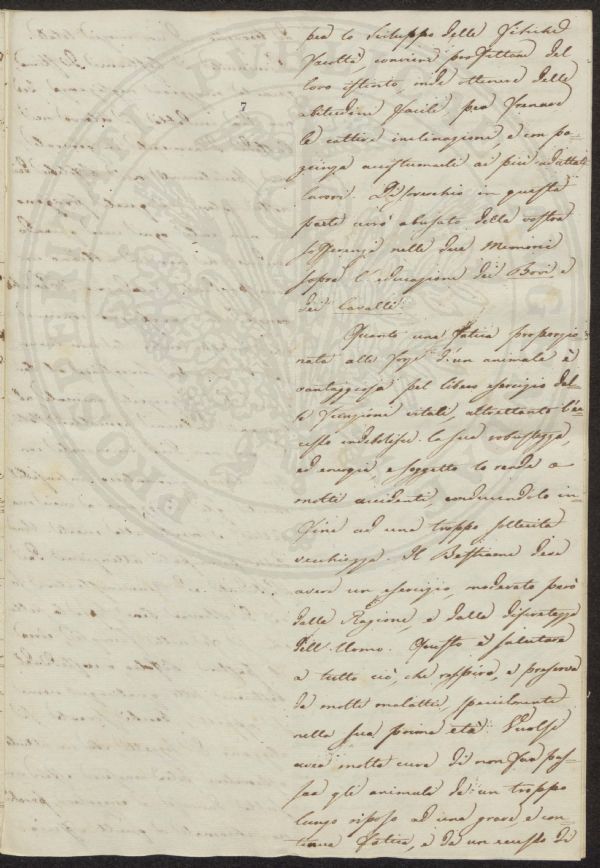 7
per lo sviluppo delle Fisiche
facoltà conviene profittare del
loro istinto, onde ottenere delle
abitudini facili per frenare
le cattive inclinazioni, e con pa-
zienza accostumarli ai più adattati
lavori. Di soverchio in questa
parte avrò abusato della vostra
sofferenza nelle due Memorie
sopra l'educazione dei Bovi e
dei Cavalli.
Quanto una fatica proporzio
nata alle forze d'un animale è
vantaggiosa pel libero esercizio del-
le funzioni vitali, altrettanto l'ec-
cesso indebolisce la sua robustezza,
ed energia, e soggetto lo rende a
molti accidenti, conducendolo in-
fine ad una troppo sollecita
vecchiezza. Il Bestiame deve
avere un esercizio, moderato però
dalla Ragione, e dalla discretezza
dell'Uomo. Questo è salutare
a tutto ciò, che respira, e preserva
da molte malattie, specialmente
nella sua prima età. Vuolsi
aver molta cura di non far pas-
sar gli animali da un troppo
lungo riposo ad una grave, e con-
tinua fatica, e da un eccesso di